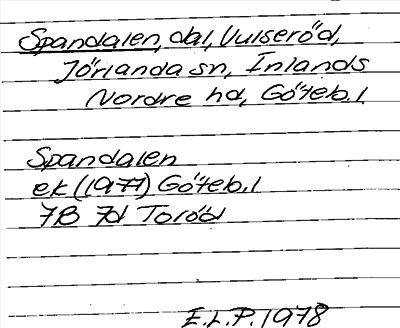 Spandalen, dal, Vulseröd,
Jörlanda sn, Inlands
Nordre hd, Göteb. l
Spandalen
ek (1977) Göteb. l
7B 7d Toröd
E.L.P. 1978